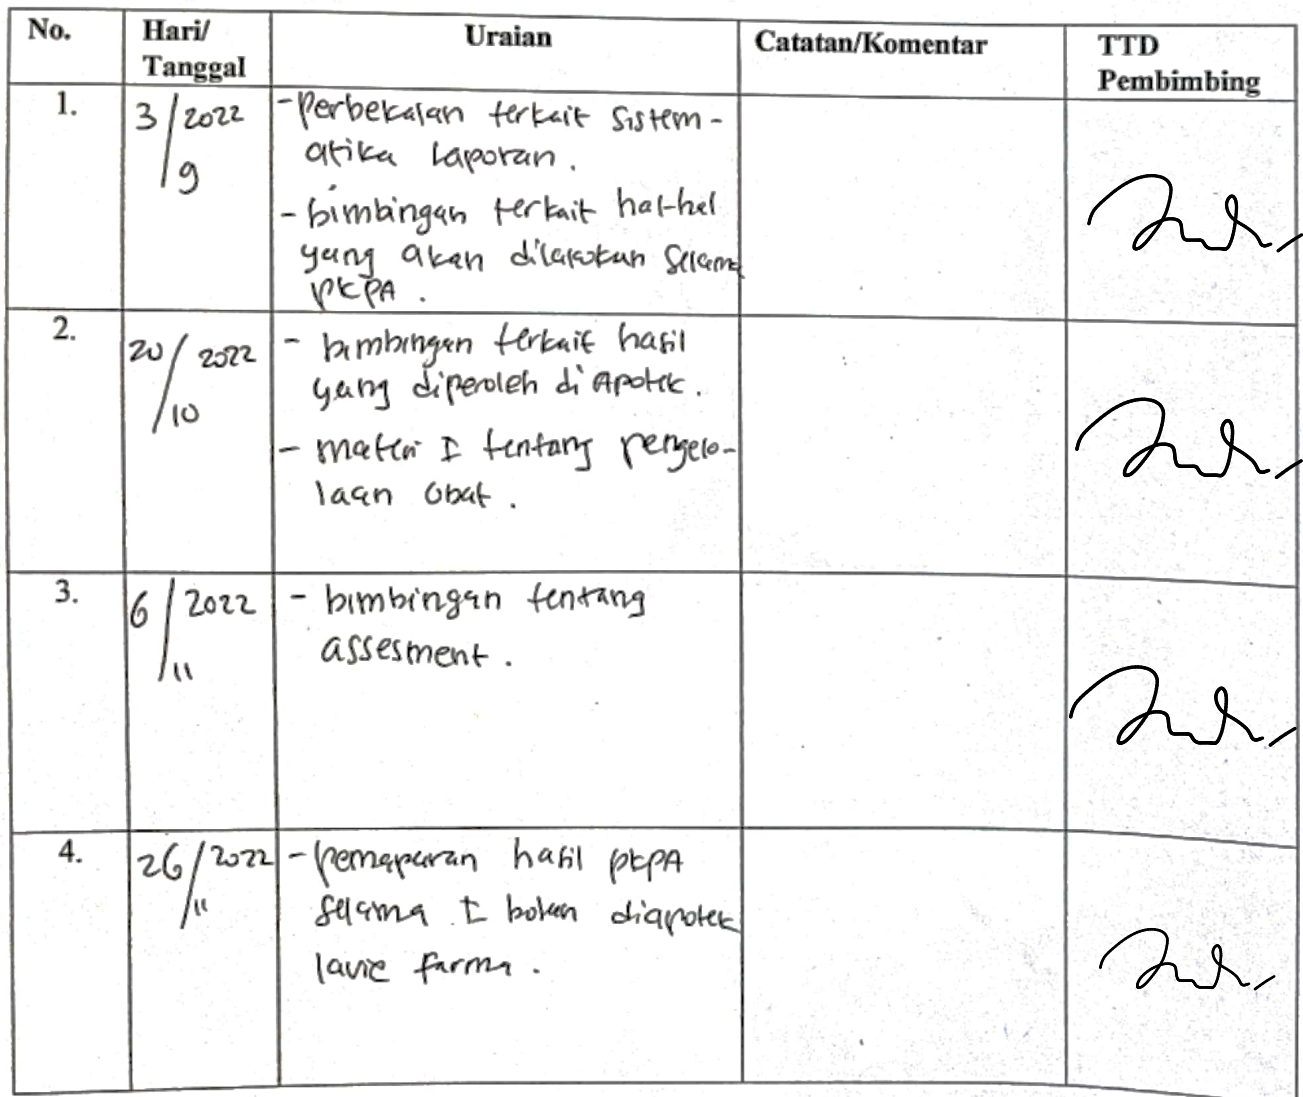 No. Hari/ Tanggal Uraian Catatan/Komentar TTD Pembimbing
1. 3/9 2022 - Perbekalan terkait sistem-
atika laporan.
- bimbingan terkait hal-hal
yang akan dilakukan selama
PKPA.
2. 20/10 2022 - bimbingan terkait hasil
yang diperoleh di Apotek.
- materi I tentang pengelo-
laan Obat.
3. 6/11 2022 - bimbingan tentang
assesment.
4. 26/11 2022 - pemaparan hasil PKPA
selama I bulan diapotek
lavie farma.